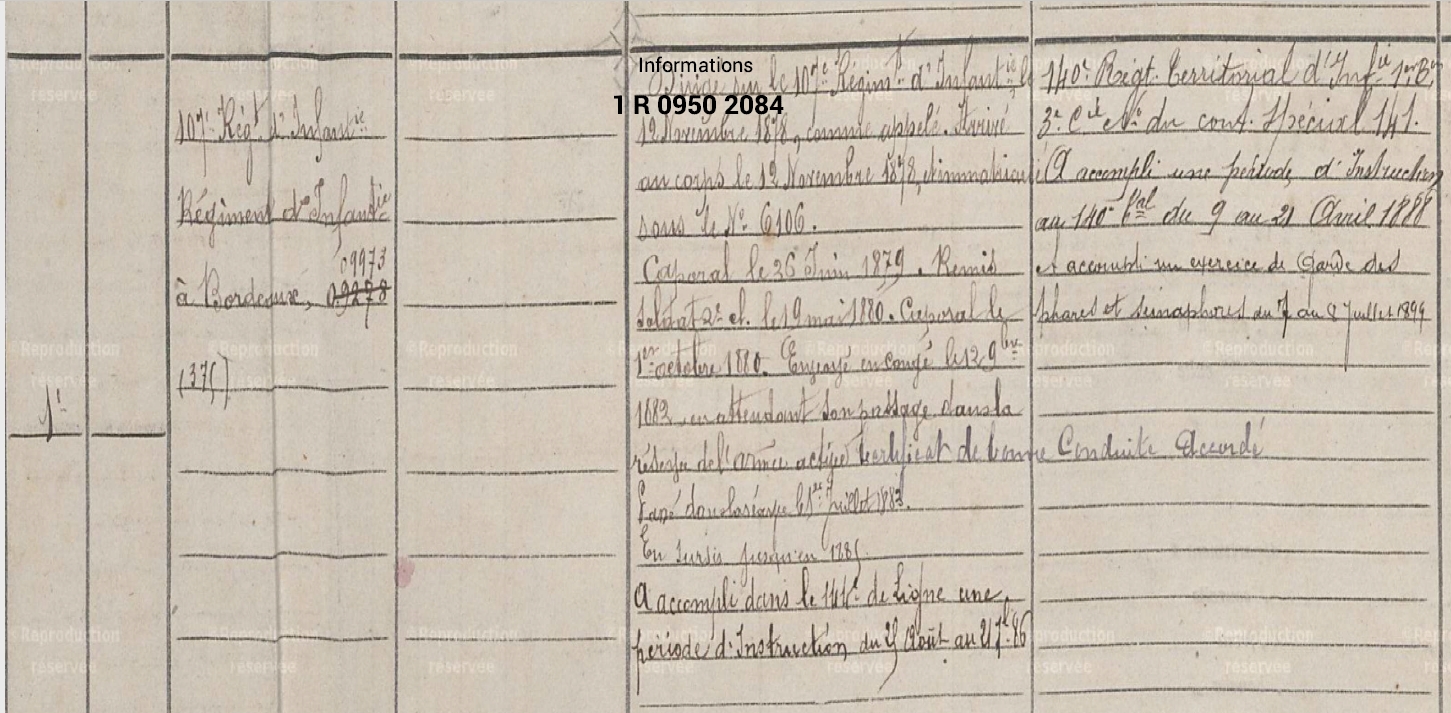 1er
107e Régt d'Infantie
Régiment d'Infantie
09973
à Bordeaux, 09278
(375)
Informations
1 R 0950 2084
Dirigé sur le 107e Régimt d'Infantie, le
12 Novembre 1878, comme appelé. Arrivé
au corps le 12 Novembre 1878, et immatriculé
sous le No 6106.
Caporal le 26 Juin 1879. Remis
soldat 2e cl. le 19 mai 1880. Caporal le
1er octobre 1880. Envoyé en congé le 12 9bre
1882 en attendant son passage dans la
réserve de l'armée active Certificat de bonne Conduite Accordé
Passé dans la réserve le 1er Juillet 1883.
En sursis jusqu'en 1885.
A accompli dans le 144e de Ligne une
période d'Instruction du 25 Août au 21 7bre 86
140e Régt Territorial d'Infie 1er Bon
3e Cie No du cont. Spécial 141.
A accompli une période d'Instruction
au 140e tal du 9 au 21 Avril 1888
et accompli un exercice de Garde des
phares et sémaphores du 7 au 8 Juillet 1899
©Reproduction
réservée